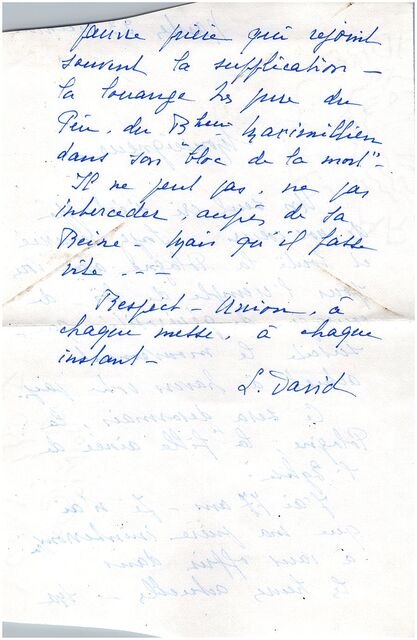 pauvre prière qui rejoint
souvent la supplication –
la louange très pure du
Père, du Bheur Maximilien
dans son "bloc de la mort" –
Il ne peut pas, ne pas
intercéder, auprès de sa
Reine – Mais qu'il fasse
vite - - -
Respect – Union, à
chaque messe, à chaque
instant –
L. David